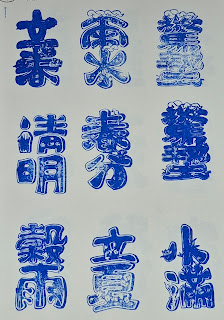 立春
雨水
驚蟄
驚蟄
春分
清明
穀雨
立夏
小滿